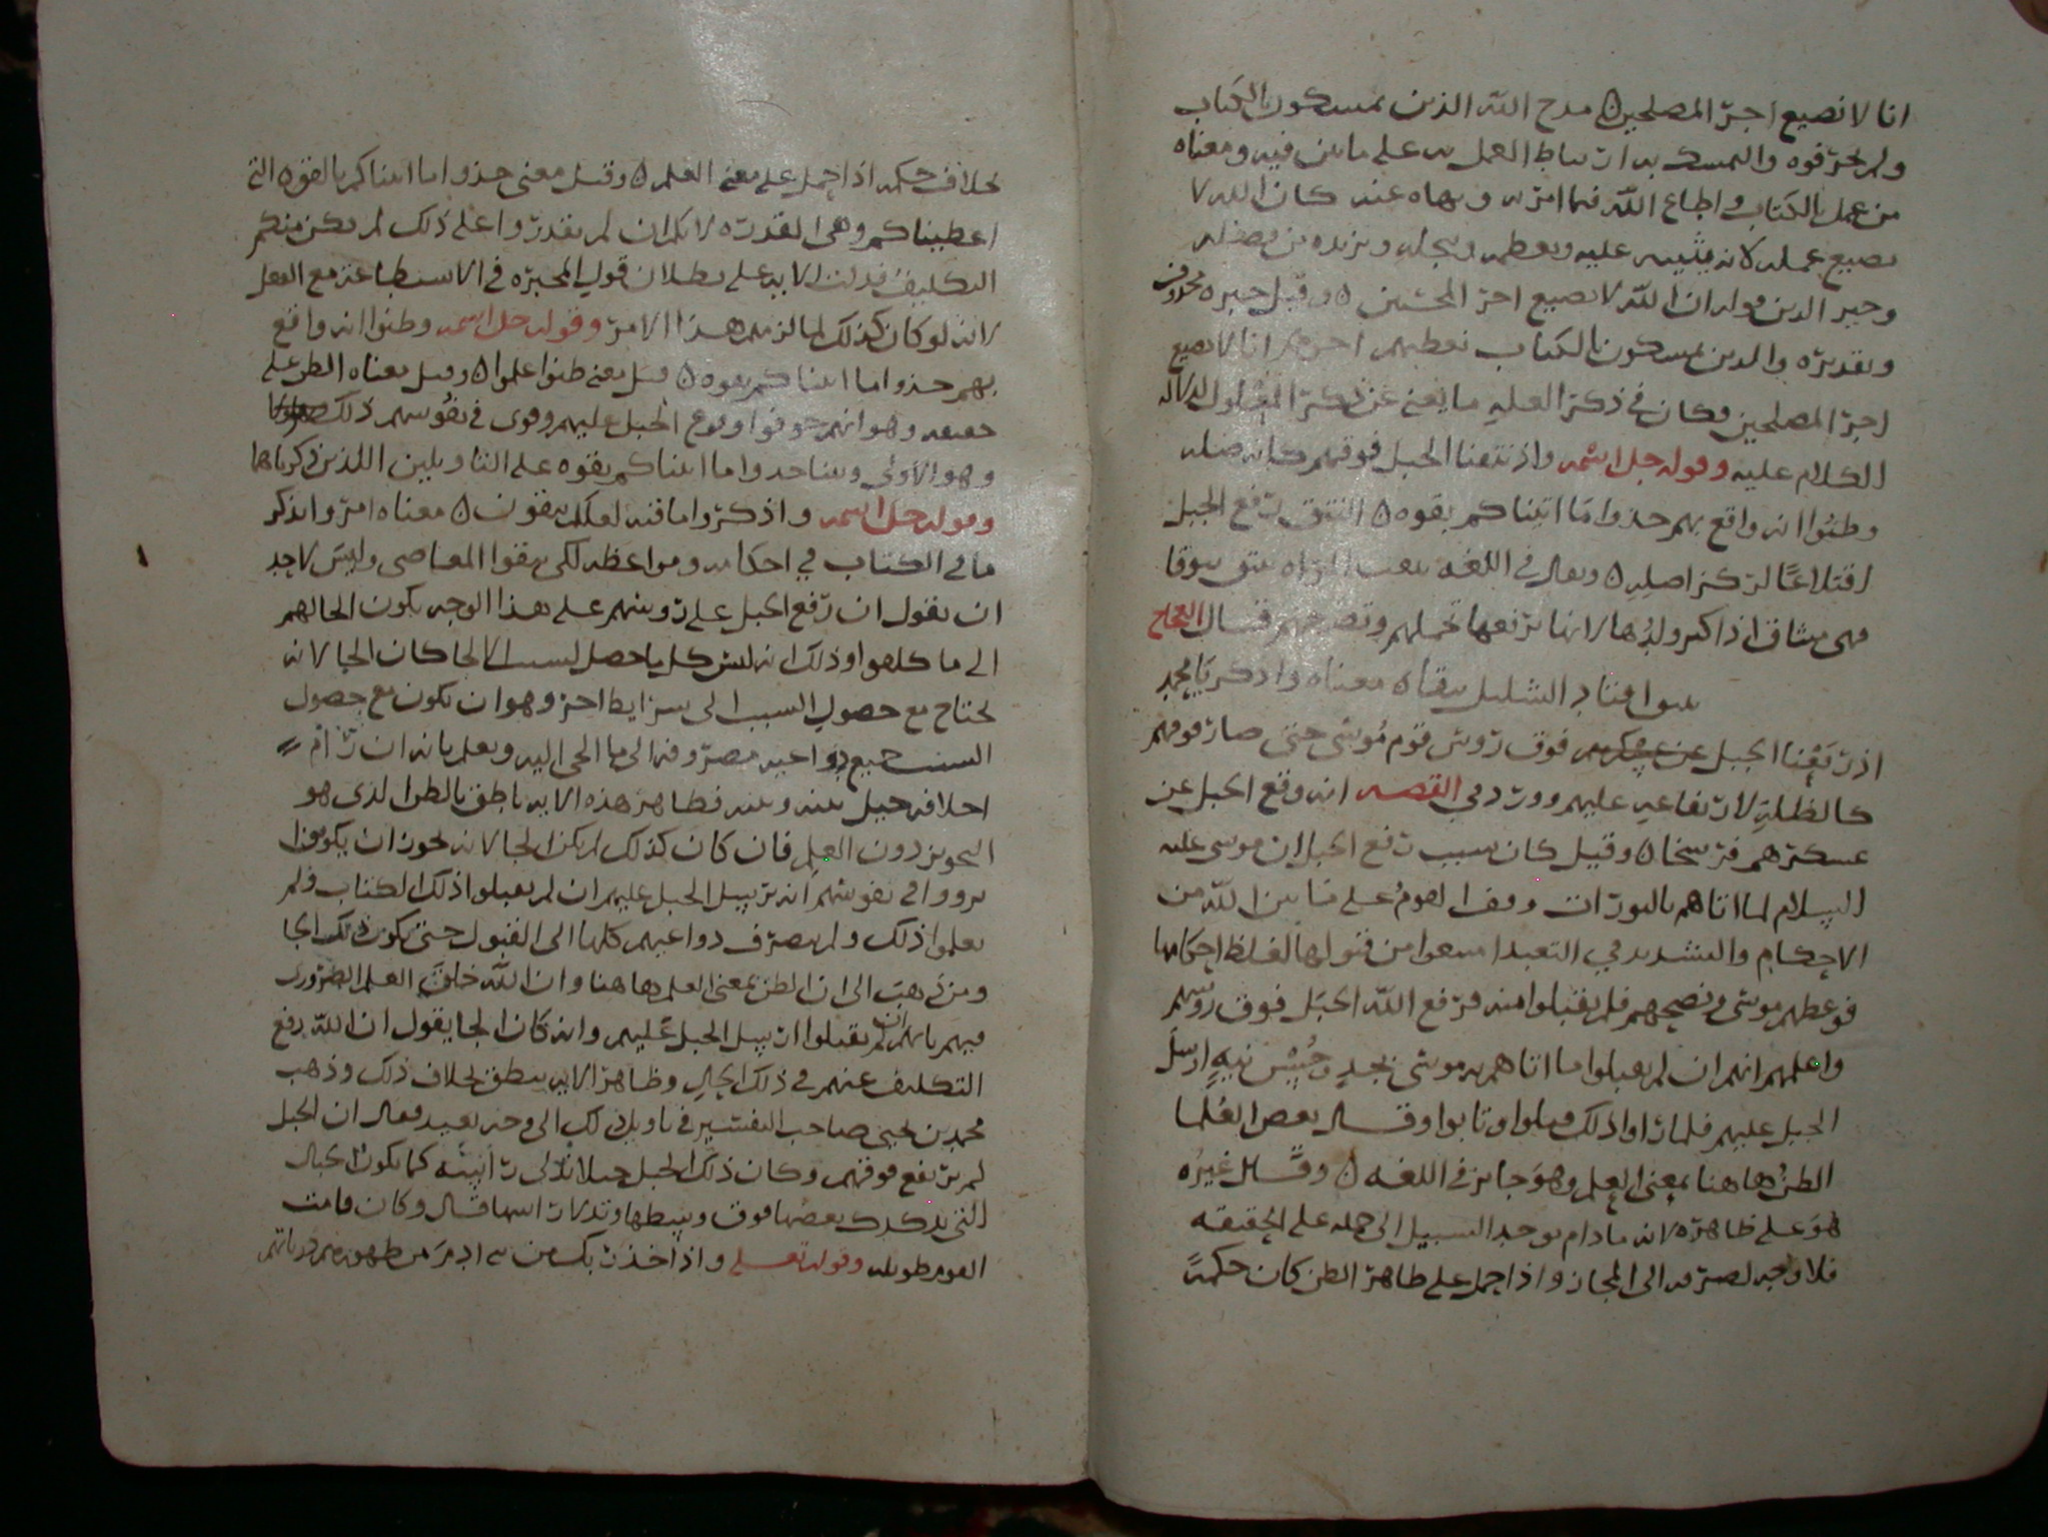 انا لا نضيع اجر المصلحين ه مدح الله الذين يمسكون بالكتاب
ولم يحرفوه والتمسك به ارتباط العمل به على ما بين فيه ومعناه
من عمل بالكتاب واطاع الله فيما امر به ونهاه عنه كان الله لا
يضيع عمله لانه يثيبه عليه ويعظمه ويبجله ويزيده من فضله
وخبر الذين قوله ان الله لا نضيع اجر المحسنين ه وقيل خبره محذوف
وتقديره والذين يمسكون الكتاب نعطيهم اجرهم انا لا نضيع
اجر المصلحين فكان في ذكر العله ما يغني عن ذكر المعلول لدلاله
الكلام عليه وقوله جل اسمه واذ نتقنا الجبل فوقهم كانه ظله
وظنوا انه واقع بهم خذوا ما اتيناكم بقوه ه النتق رفع الجبل
اقتلاعا لمركز اصله ه ويقال في اللغه نتقت المراه تنتق نتوقا
فهي منتاق اذا كبر ولدها لانها ترفعها بحملهم وتضمهم قال العجاج
اقتاد الشليل نتقا ه معناه واذكر يا محمد
اذ رفعنا الجبل فوق روس قوم موسى حتى صار فوقهم
كالظله لارتفاعه عليهم وورد في القصه انه وقع الجبل عن
عسكرهم فرسخا ه وقيل كان سبب رفع الجبل ان موسى عليه
السلام لما اتاهم بالتورات وقفا لهوم على ما بين الله من
الاحكام والتشديد في التعبد امتنعوا من قبولها لغلظ احكامها
فوعظهم موسى ونصحهم فلم يقبلوا منه فرفع الله الجبل فوق روسهم
واعلمهم انهم ان لم يقبلوا ما اتاهم به موسى بجد وحسن نيه ارسل
الجبل عليهم فلما راوا ذلك قبلوا وتابوا وقال بعض العلما
الظن هاهنا بمعنى العلم وهو جايز في اللغه ه وقال غيره
هو على ظاهره لانه ما دام يوجد السبيل الى حمله على الحقيقه
فلا وجه لصرفه الى المجاز واذا حمل على ظاهر الظن كان حكمه
بخلاف حكمه اذا حمل على معنى العلم ه وقيل معنى خذوا ما اتيناكم بالقوه التي
اعطيناكم وهي القدره لانكم ان لم تقدروا على ذلك لم يكن منكم
التكليف فدلت الايه على بطلان قول المجبره في الاستطاعه مع الفعل
لانه لو كان كذلك لما لزمهم هذا الامر وقوله جل اسمه وظنوا انه واقع
بهم خذوا ما اتيناكم بقوه ه قيل يعني ظنوا علموا ه وقيل معناه الظن على
حقيقته وهو انهم خوفوا وقوع الجبل عليهم وقوى في نفوسهم ذلك
وهو الاولى وبينا خذوا ما اتيناكم بقوه على التاويلين اللذين ذكرناها
وقوله جل اسمه واذكروا ما فيه لعلكم تتقون ه معناه امروا بذكر
ما في الكتاب في احكامه ومواعظه لكي يتقوا المعاصي وليس لاحد
ان يقول ان رفع الجبل على روسهم على هذا الوجه يكون الجا لهم
الى ما كلفوا وذلك انه ليس كل ما حصل لسبب الالجا كان الجا لانه
يحتاج مع حصول السبب الى شرايط اخر وهو ان تكون مع حصول
السبب جميع دواعيه مصروفه الى ما الجي اليه ويعلم بانه ان رام
اخلافه حيل بينه وبينه فظاهر هذه الايه ناطق بالظن الذي هو
التجويز دون العلم فان كان كذلك لم يكن الجا لانه يجوز ان يكونوا
في نفوسهم انه يرسل الجبل عليهم ان لم يقبلوا ذلك الكتاب ولم
يعلموا ذلك ولم تصرف دواعيهم كلها الى القبول حتى يكون ذلك الجا
ومن ذهب الى ان الظن بمعنى العلم هاهنا وان الله خلق العلم الضروري
فيهم بانهم ان لم يقبلوا ارسل الجبل عليهم وانه كان الجا يقول ان الله رفع
التكليف عنهم في ذلك الحال وظاهر الايه ينطق بخلاف ذلك وذهب
محمد بن يحيى صاحب التفسير في تاويل ذلك الى وجه بعيد فقال ان الجبل
لم يرتفع فوقهم وكان ذلك الجبل جبلا كما تكون الجبال
التي يدكدك بعضها فوق قال وكان قامت
القوم طويله وقوله تعالى واذ اخذ ربك من بني ادم من ظهورهم ذرياتهم